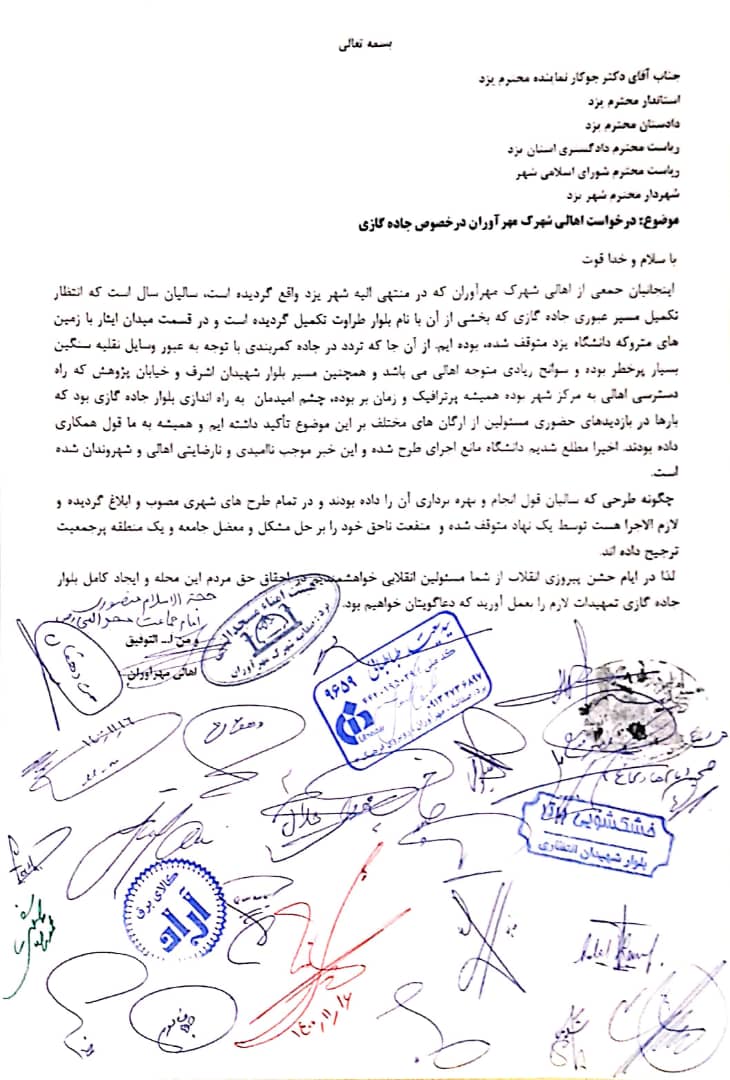 بسمه تعالی
جناب آقای دکتر جوکار نماینده محترم یزد
استاندار محترم یزد
دادستان محترم یزد
ریاست محترم دادگستری استان یزد
ریاست محترم شورای اسلامی شهر
شهردار محترم شهر یزد
موضوع: درخواست اهالی شهرک مهرآوران درخصوص جاده گازی
با سلام و خدا قوت
اینجانبان جمعی از اهالی شهرک مهرآوران که در منتهی الیه شهر یزد واقع گردیده است، سالیان سال است که انتظار
تکمیل مسیر عبوری جاده گازی که بخشی از آن با نام بلوار طراوت تکمیل گردیده است و در قسمت میدان ایثار با زمین
های متروکه دانشگاه یزد متوقف شده، بوده ایم. از آن جا که تردد در جاده کمربندی با توجه به عبور وسایل نقلیه سنگین
بسیار پرخطر بوده و سوانح زیادی متوجه اهالی می باشد و همچنین مسیر بلوار شهیدان اشرف و خیابان پژوهش که راه
دسترسی اهالی به مرکز شهر بوده همیشه پرترافیک و زمان بر بوده، چشم امیدمان به راه اندازی بلوار جاده گازی بود که
بارها در بازدیدهای حضوری مسئولین از ارگان های مختلف بر این موضوع تأکید داشته ایم و همیشه به ما قول همکاری
داده بودند. اخیرا مطلع شدیم دانشگاه مانع اجرای طرح شده و این خبر موجب ناامیدی و نارضایتی اهالی و شهروندان شده
است.
چگونه طرحی که سالیان قول انجام و بهره برداری آن را داده بودند و در تمام طرح های شهری مصوب و ابلاغ گردیده و
لازم الاجرا هست توسط یک نهاد متوقف شده و منفعت ناحق خود را بر حل مشکل و معضل جامعه و یک منطقه پرجمعیت
ترجیح داده اند.
لذا در ایام جشن پیروزی انقلاب از شما مسئولین انقلابی خواهشمندیم در احقاق حق مردم این محله و ایجاد کامل بلوار
جاده گازی تمهیدات لازم را بعمل آورید که دعاگویتان خواهیم بود.
و من ا... التوفیق
اهالی مهرآوران
حجة الاسلام منصوری
امام جماعت
هیئت امناء مسجد
یزد: صفائیه شهرک مهرآوران
۹۶۵۹
خشکشویی
بلوار شهیدان انتظاری
کالای برق
آراد
۱۴۰۰/۱۱/۱۶